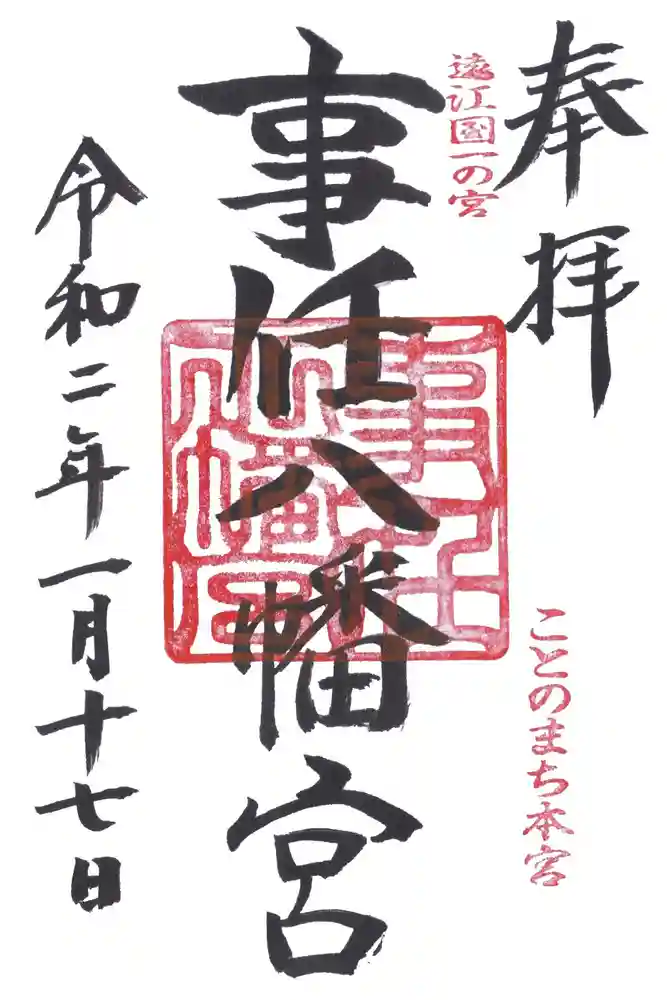 奉拝
遠江国一の宮
ことのまち本宮
事任八幡宮
事任
八幡宮
令和二年一月十七日